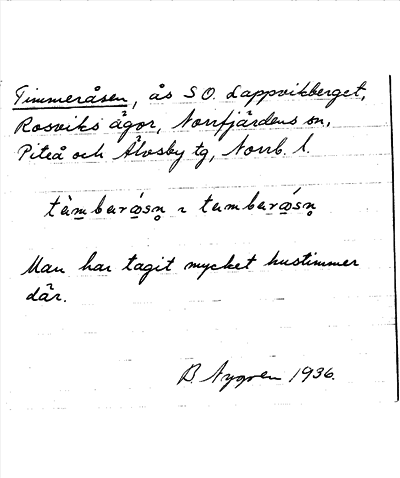 Timmeråsen, ås S O. Lappvikberget,
Rosviks ägor, Norrfjärdens sn,
Piteå och Älvsby tg, Norrb. l.
Man har tagit mycket hustimmer
där.
B. Nygren 1936.